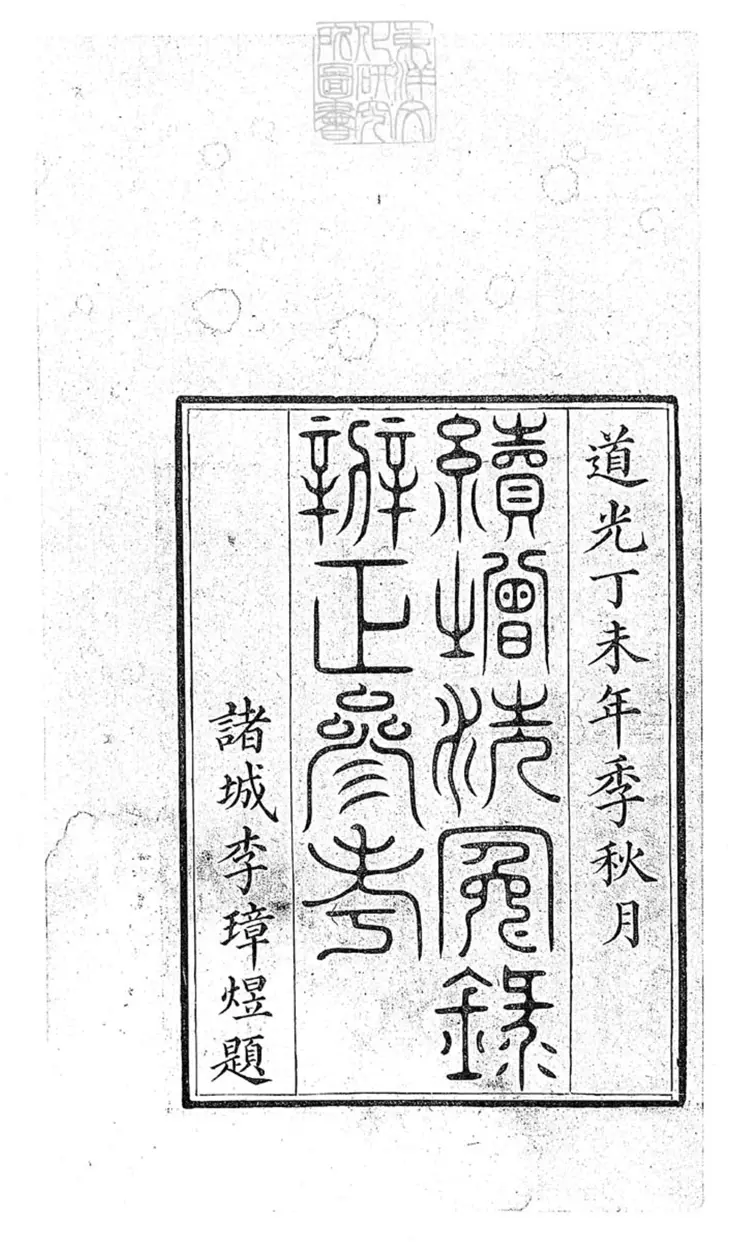 東洋文
化研究
所圖書
道光丁未年季秋月
續增洗冤錄
辨正參考
諸城李璋煜題